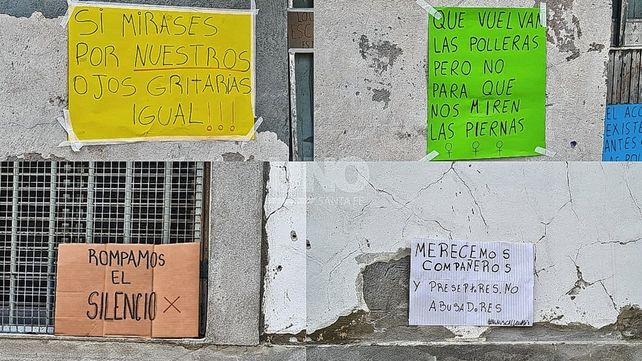 SI MIRASES
POR NUESTROS
OJOS GRITARÍAS
IGUAL!!!
QUE VUELVAN
LAS POLLERAS
PERO NO
PARA QUE
NOS MIREN
LAS PIERNAS
EL ACO
EXISTE
ANTES
UNO
SANTA FE
ROMPAMOS
EL
SILENCIO X
MERECEMOS
COMPAÑEROS
Y PRESEPTORES, NO
ABUSADORES